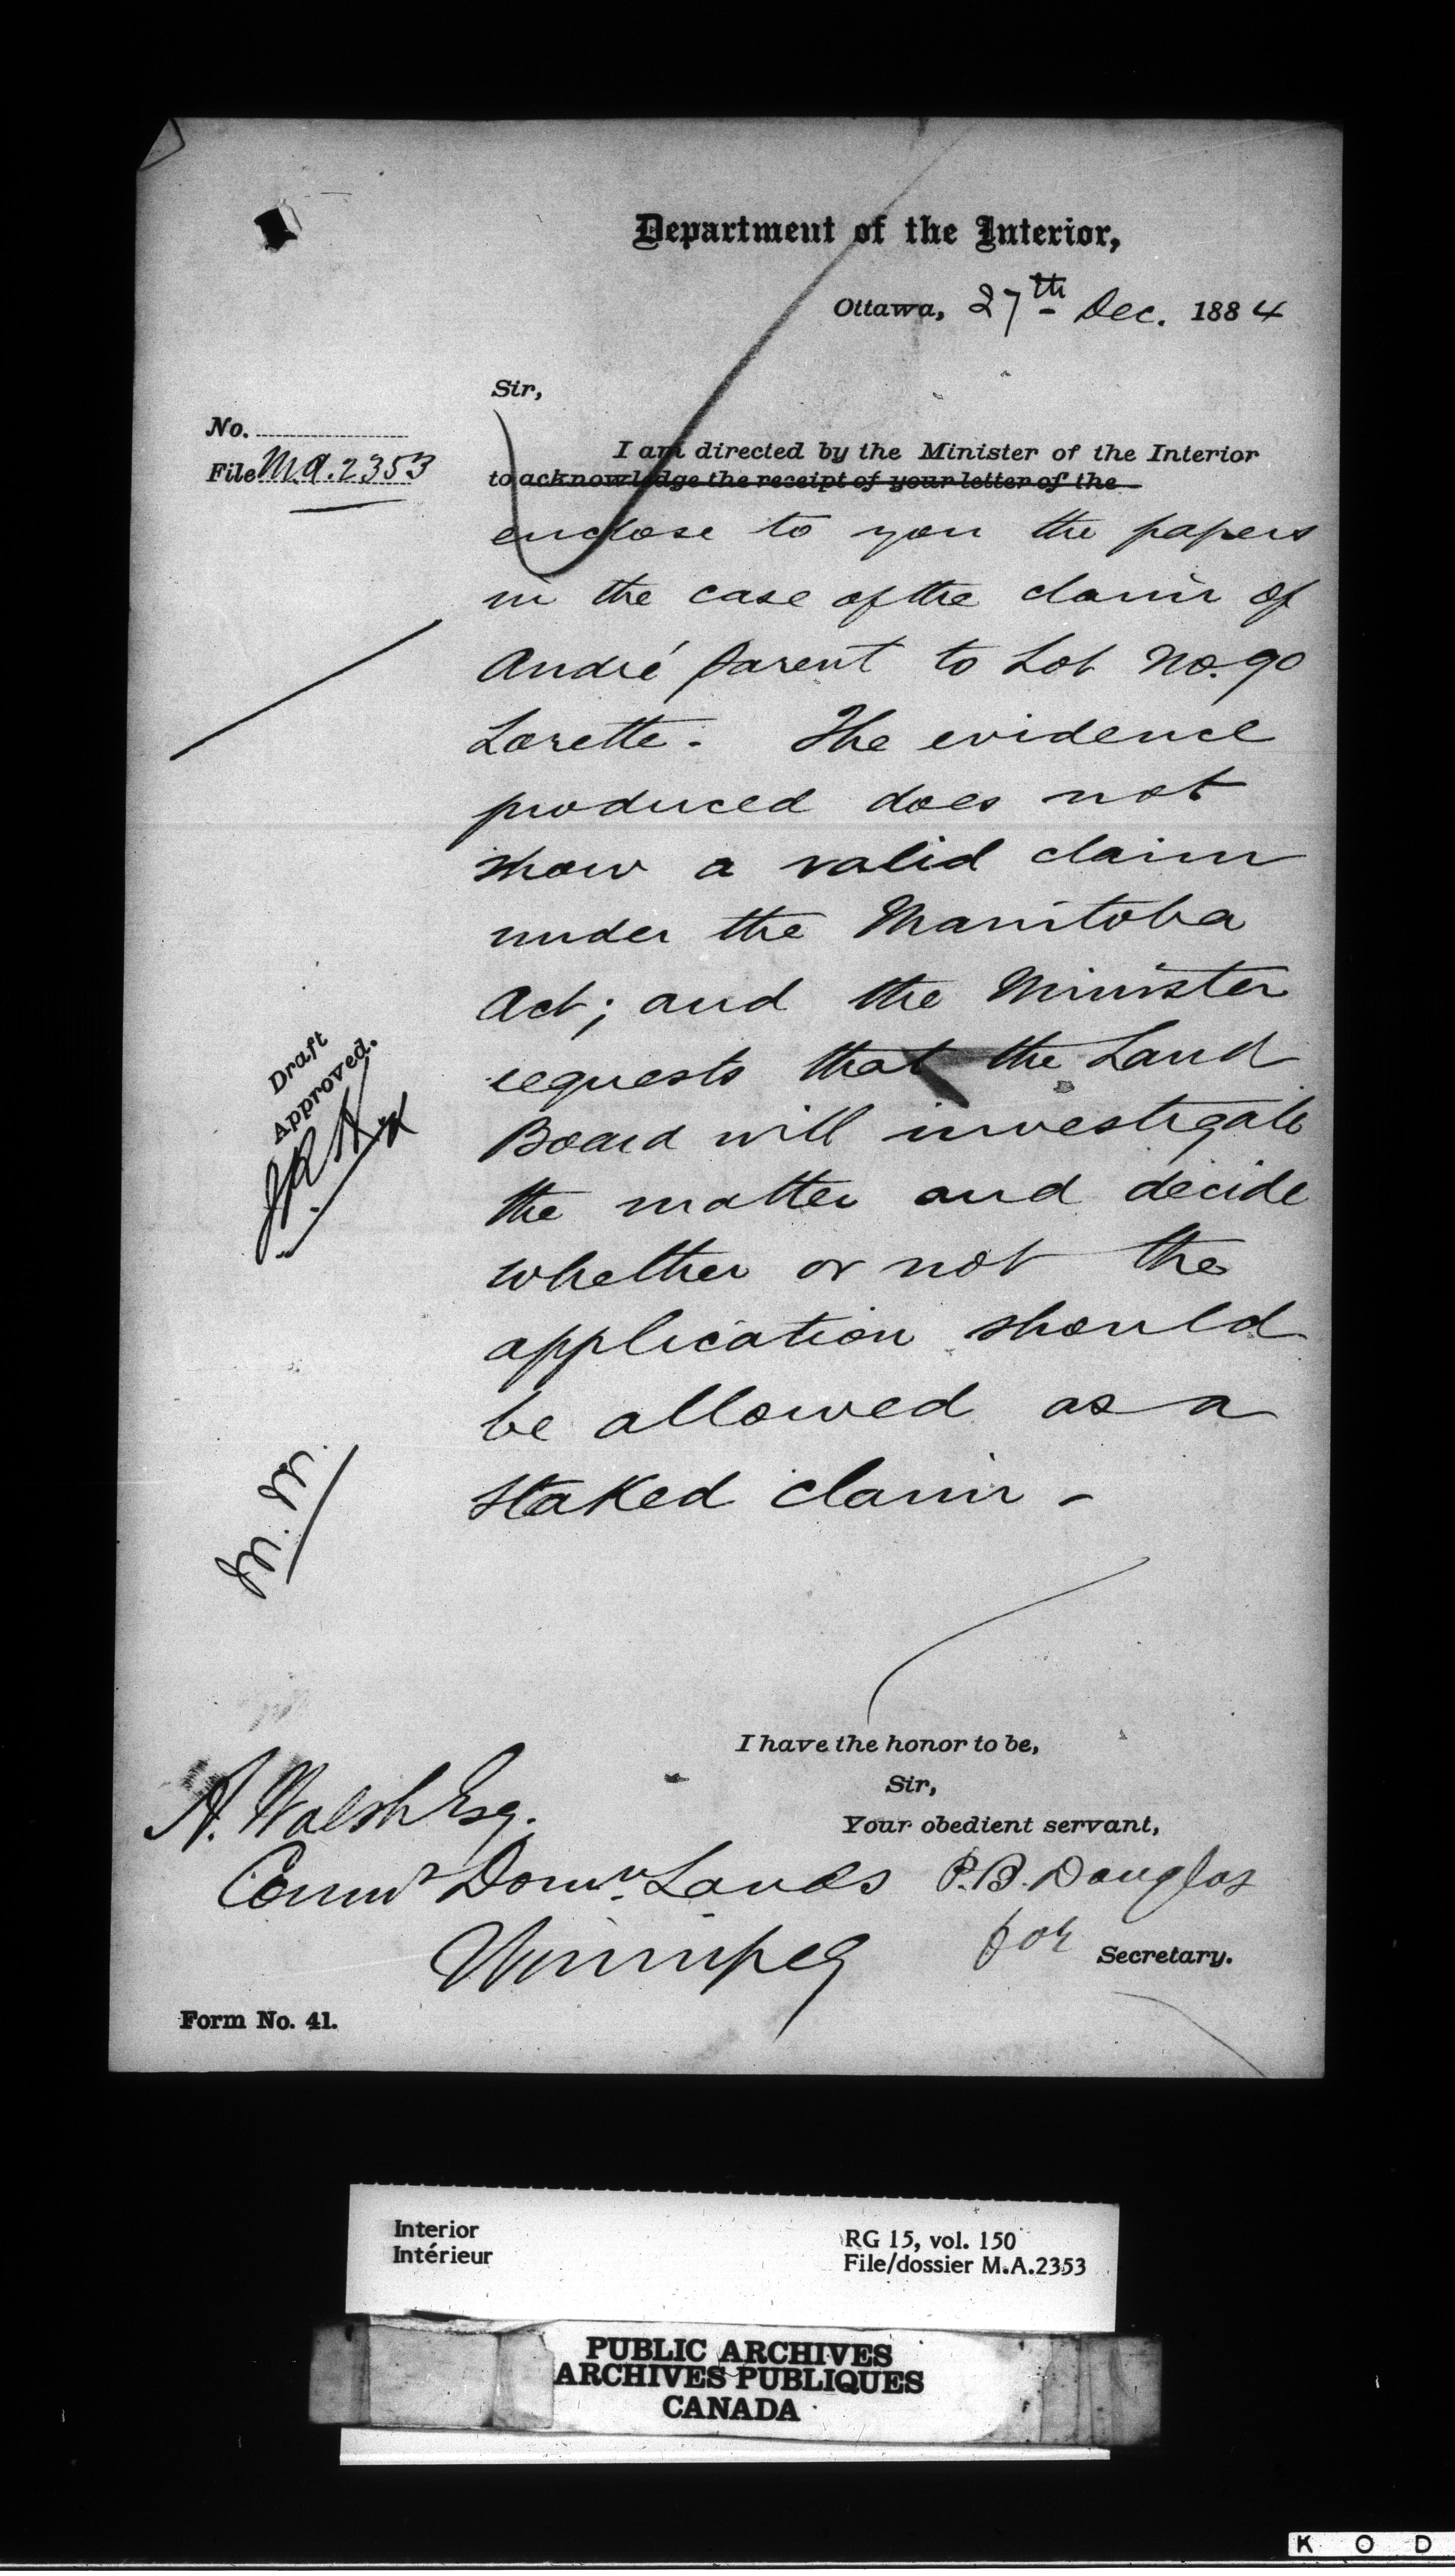 Department of the Interior,
Ottawa, 27th Dec. 1884
Sir,
No.
File M.A. 2353
I am directed by the Minister of the Interior
to acknowledge the receipt of your letter of the
enclose to you the papers
in the case of the claim of
André Parent to Lot No. 90
Lorette. The evidence
produced does not
show a valid claim
under the Manitoba
Act; and the Minister
requests that the Land
Board will investigate
the matter and decide
whether or not the
application should
be allowed as a
staked claim -
Draft
Approved.
M. M.
I have the honor to be,
Sir,
Your obedient servant,
A. Walsh Esq.
Commr Domn. Lands
Winnipeg
P. B. Douglas
for Secretary.
Form No. 41.
Interior
Intérieur
RG 15, vol. 150
File/dossier M.A.2353
PUBLIC ARCHIVES
ARCHIVES PUBLIQUES
CANADA
K O D